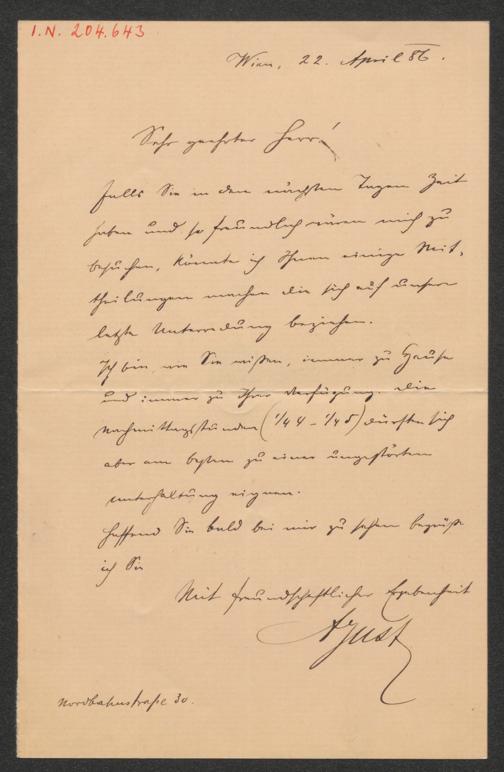 I.N. 204.643
Wien, 22. April 86.
Sehr geehrter Herr!
Falls Sie in den nächsten Tagen Zeit
haben und so freundlich wären mich zu
besuchen, könnte ich Ihnen einige Mit-
theilungen machen die sich auf unsere
letzte Unterredung beziehen.
Ich bin, wie Sie wißen, immer zu Hause
und immer zu Ihrer Verfügung. Die
Nachmittagsstunden (1/4 4 - 1/4 5) dürften sich
aber am besten zu einer ungestörten
Unterhaltung eignen.
Hoffend Sie bald bei mir zu sehen begrüße
ich Sie
Mit freundschaftlicher Ergebenheit
AJust
Nordbahnstraße 30.